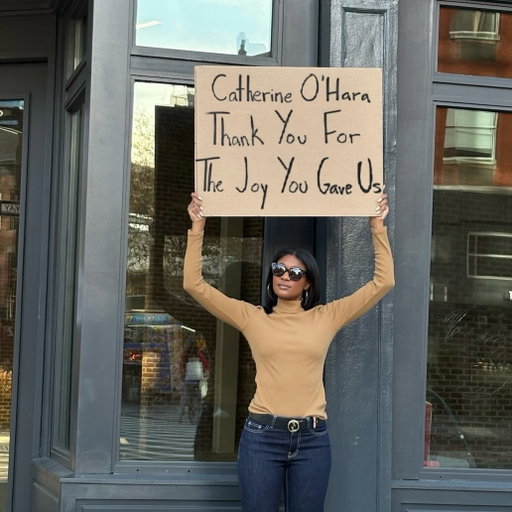 Catherine O'Hara
Thank You For
The Joy You Gave Us